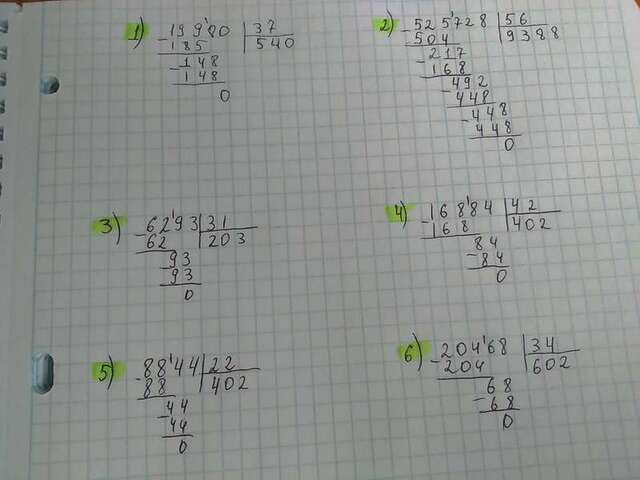 1) -199'80 | 37
185 | 540
-148
148
0
2) -525'728 | 56
504 | 9388
-217
168
-492
448
-448
448
0
3) -62'93 | 31
62 | 203
-93
93
0
4) -168'84 | 42
168 | 402
-84
84
0
5) -88'44 | 22
88 | 402
-44
44
0
6) -204'68 | 34
204 | 602
-68
68
0